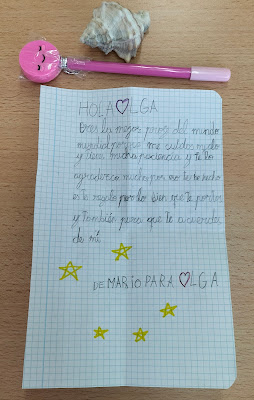 HOLA ♡LGA
Eres la mejor profe del mundo
mundial porque me cuidas mucho
y tiens mucha paciencia y te lo
agradezco mucho por eso te he hecho
este regalo por lo bien que te portas
y también para que te acuerdes
de mi
DE MARIO PARA ♡LGA